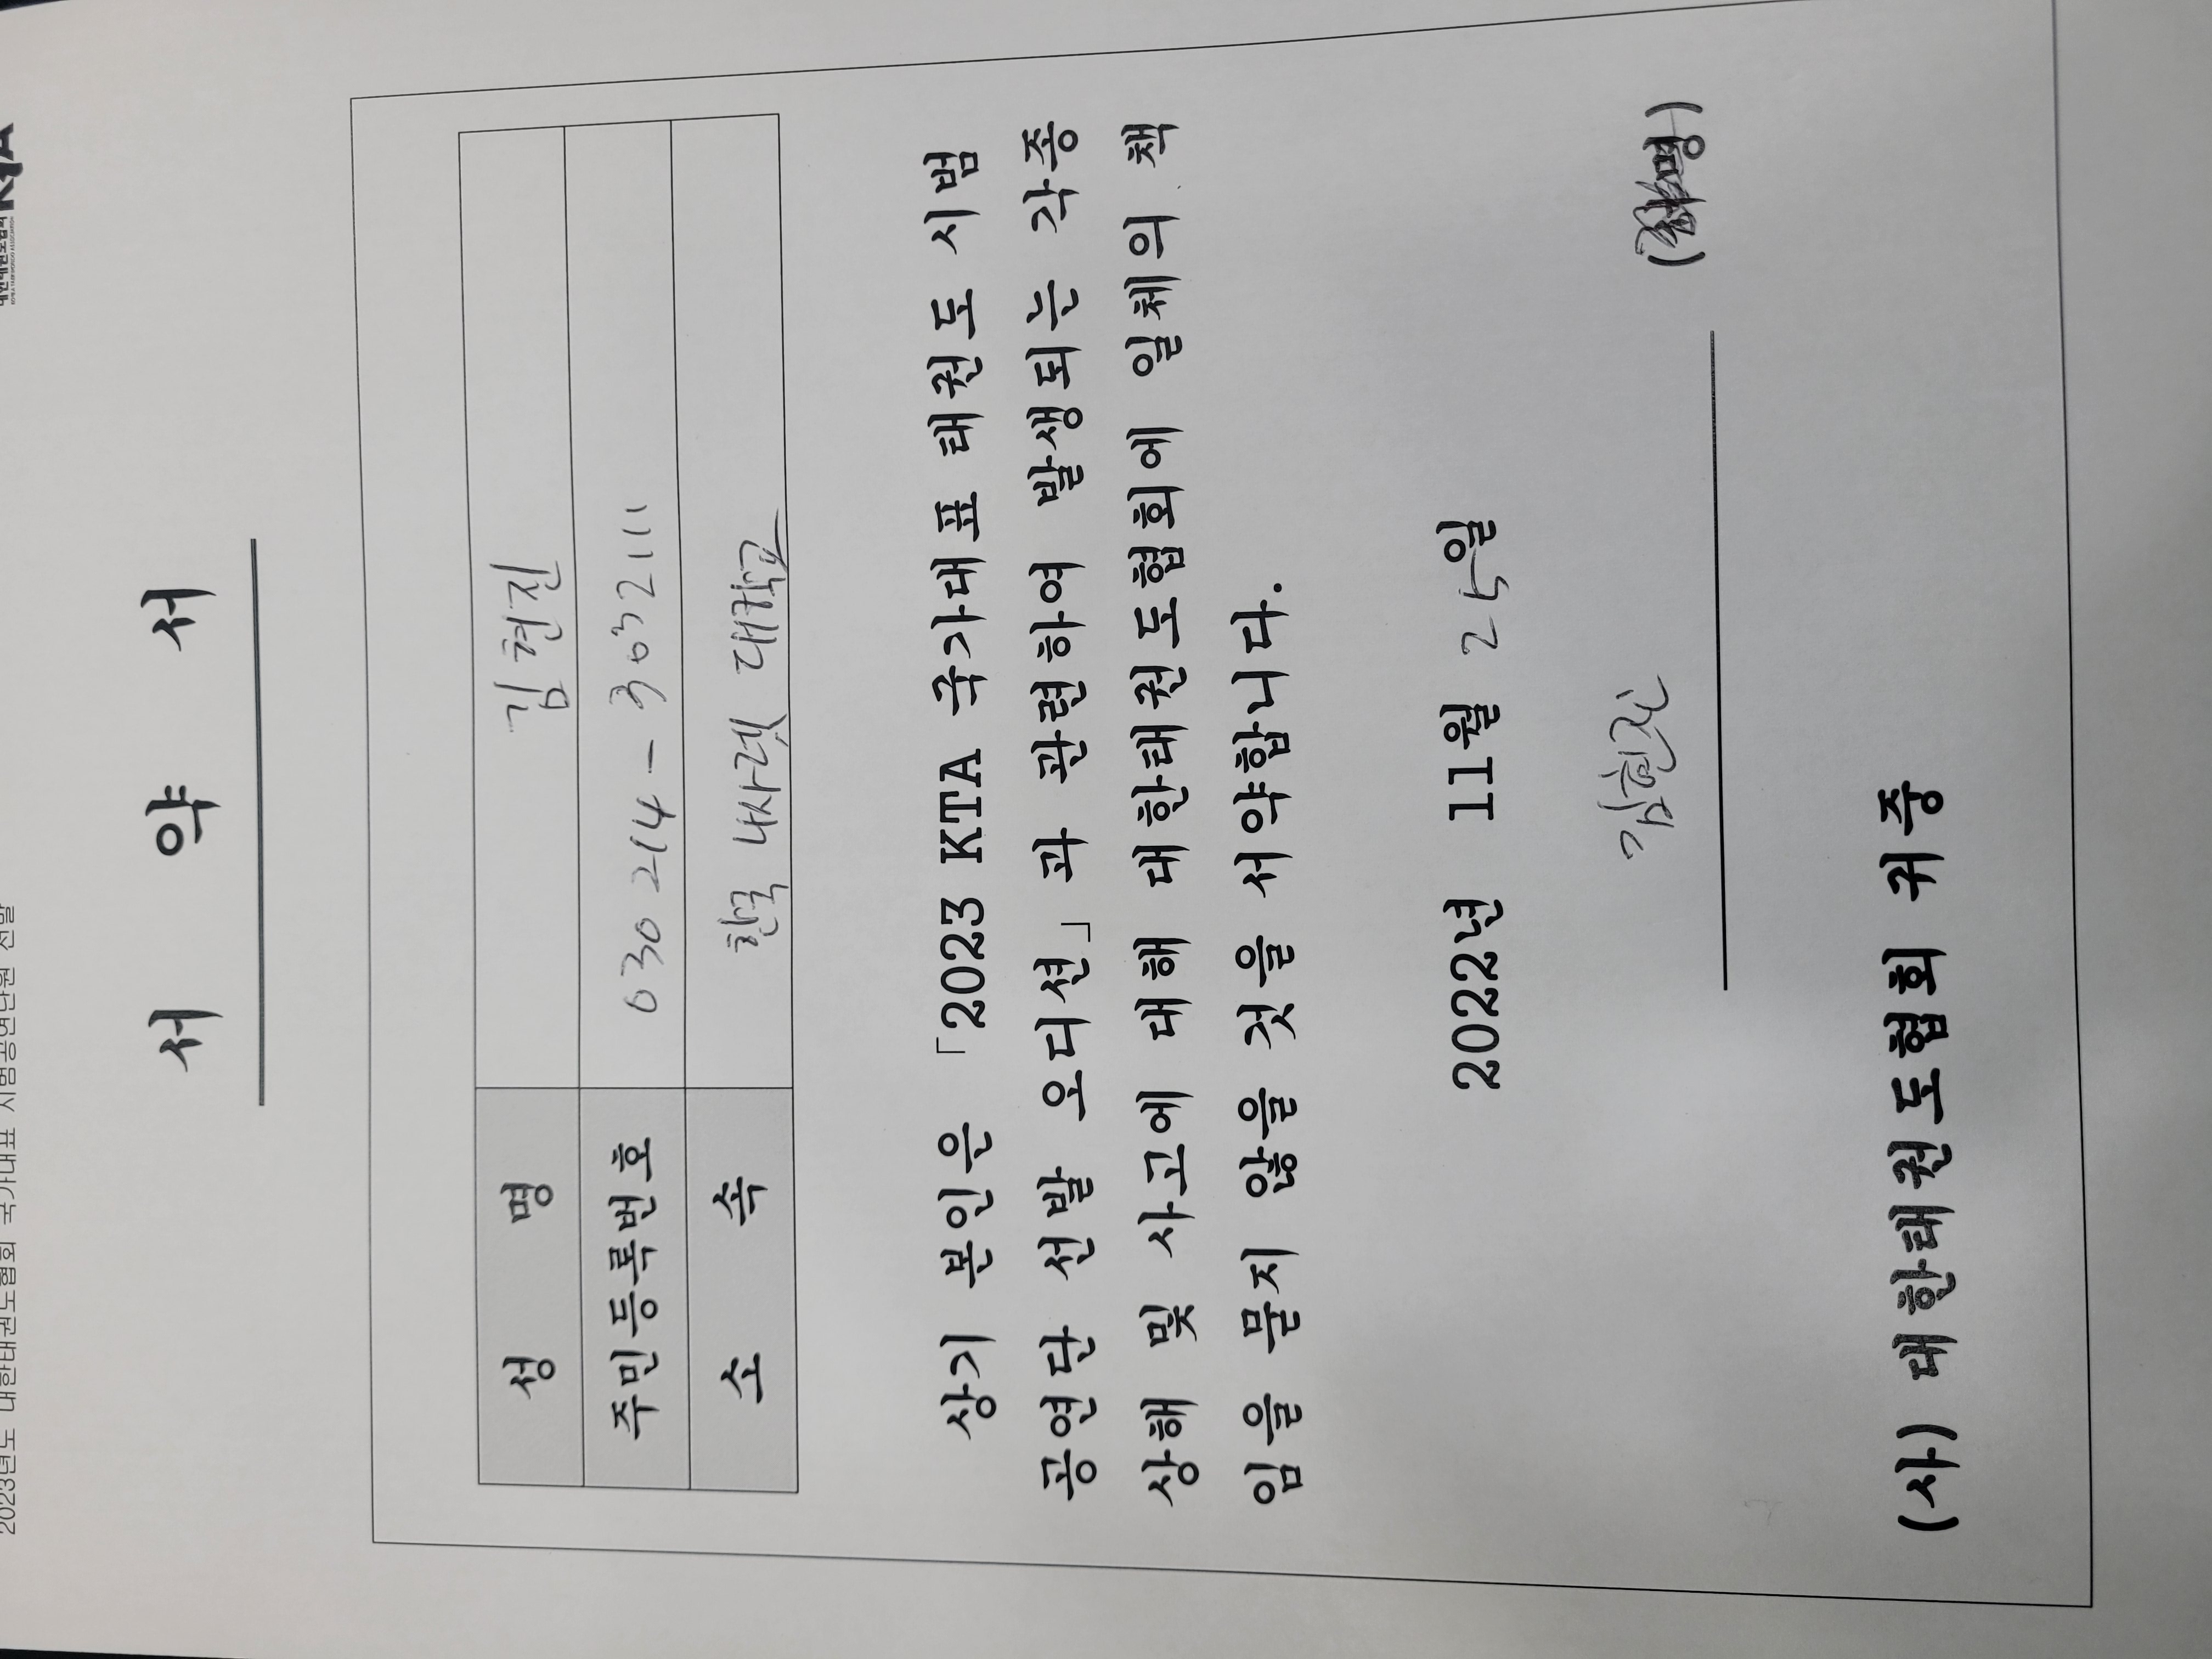 2023년도 대한태권도협회 국가대표 시범공연단원 선발
서 약 서
성 명 김현진
주민등록번호 030214-3032111
소 속 한국 나사렛 대학교
상기 본인은 「2023 KTA 국가대표 태권도 시범
공연단 선발 오디션」과 관련하여 발생되는 각종
상해 및 사고에 대해 대한태권도협회에 일체의 책
임을 묻지 않을 것을 서약합니다.
2022년 11월 25일
김현진 (서명)
(사) 대한태권도협회 귀중